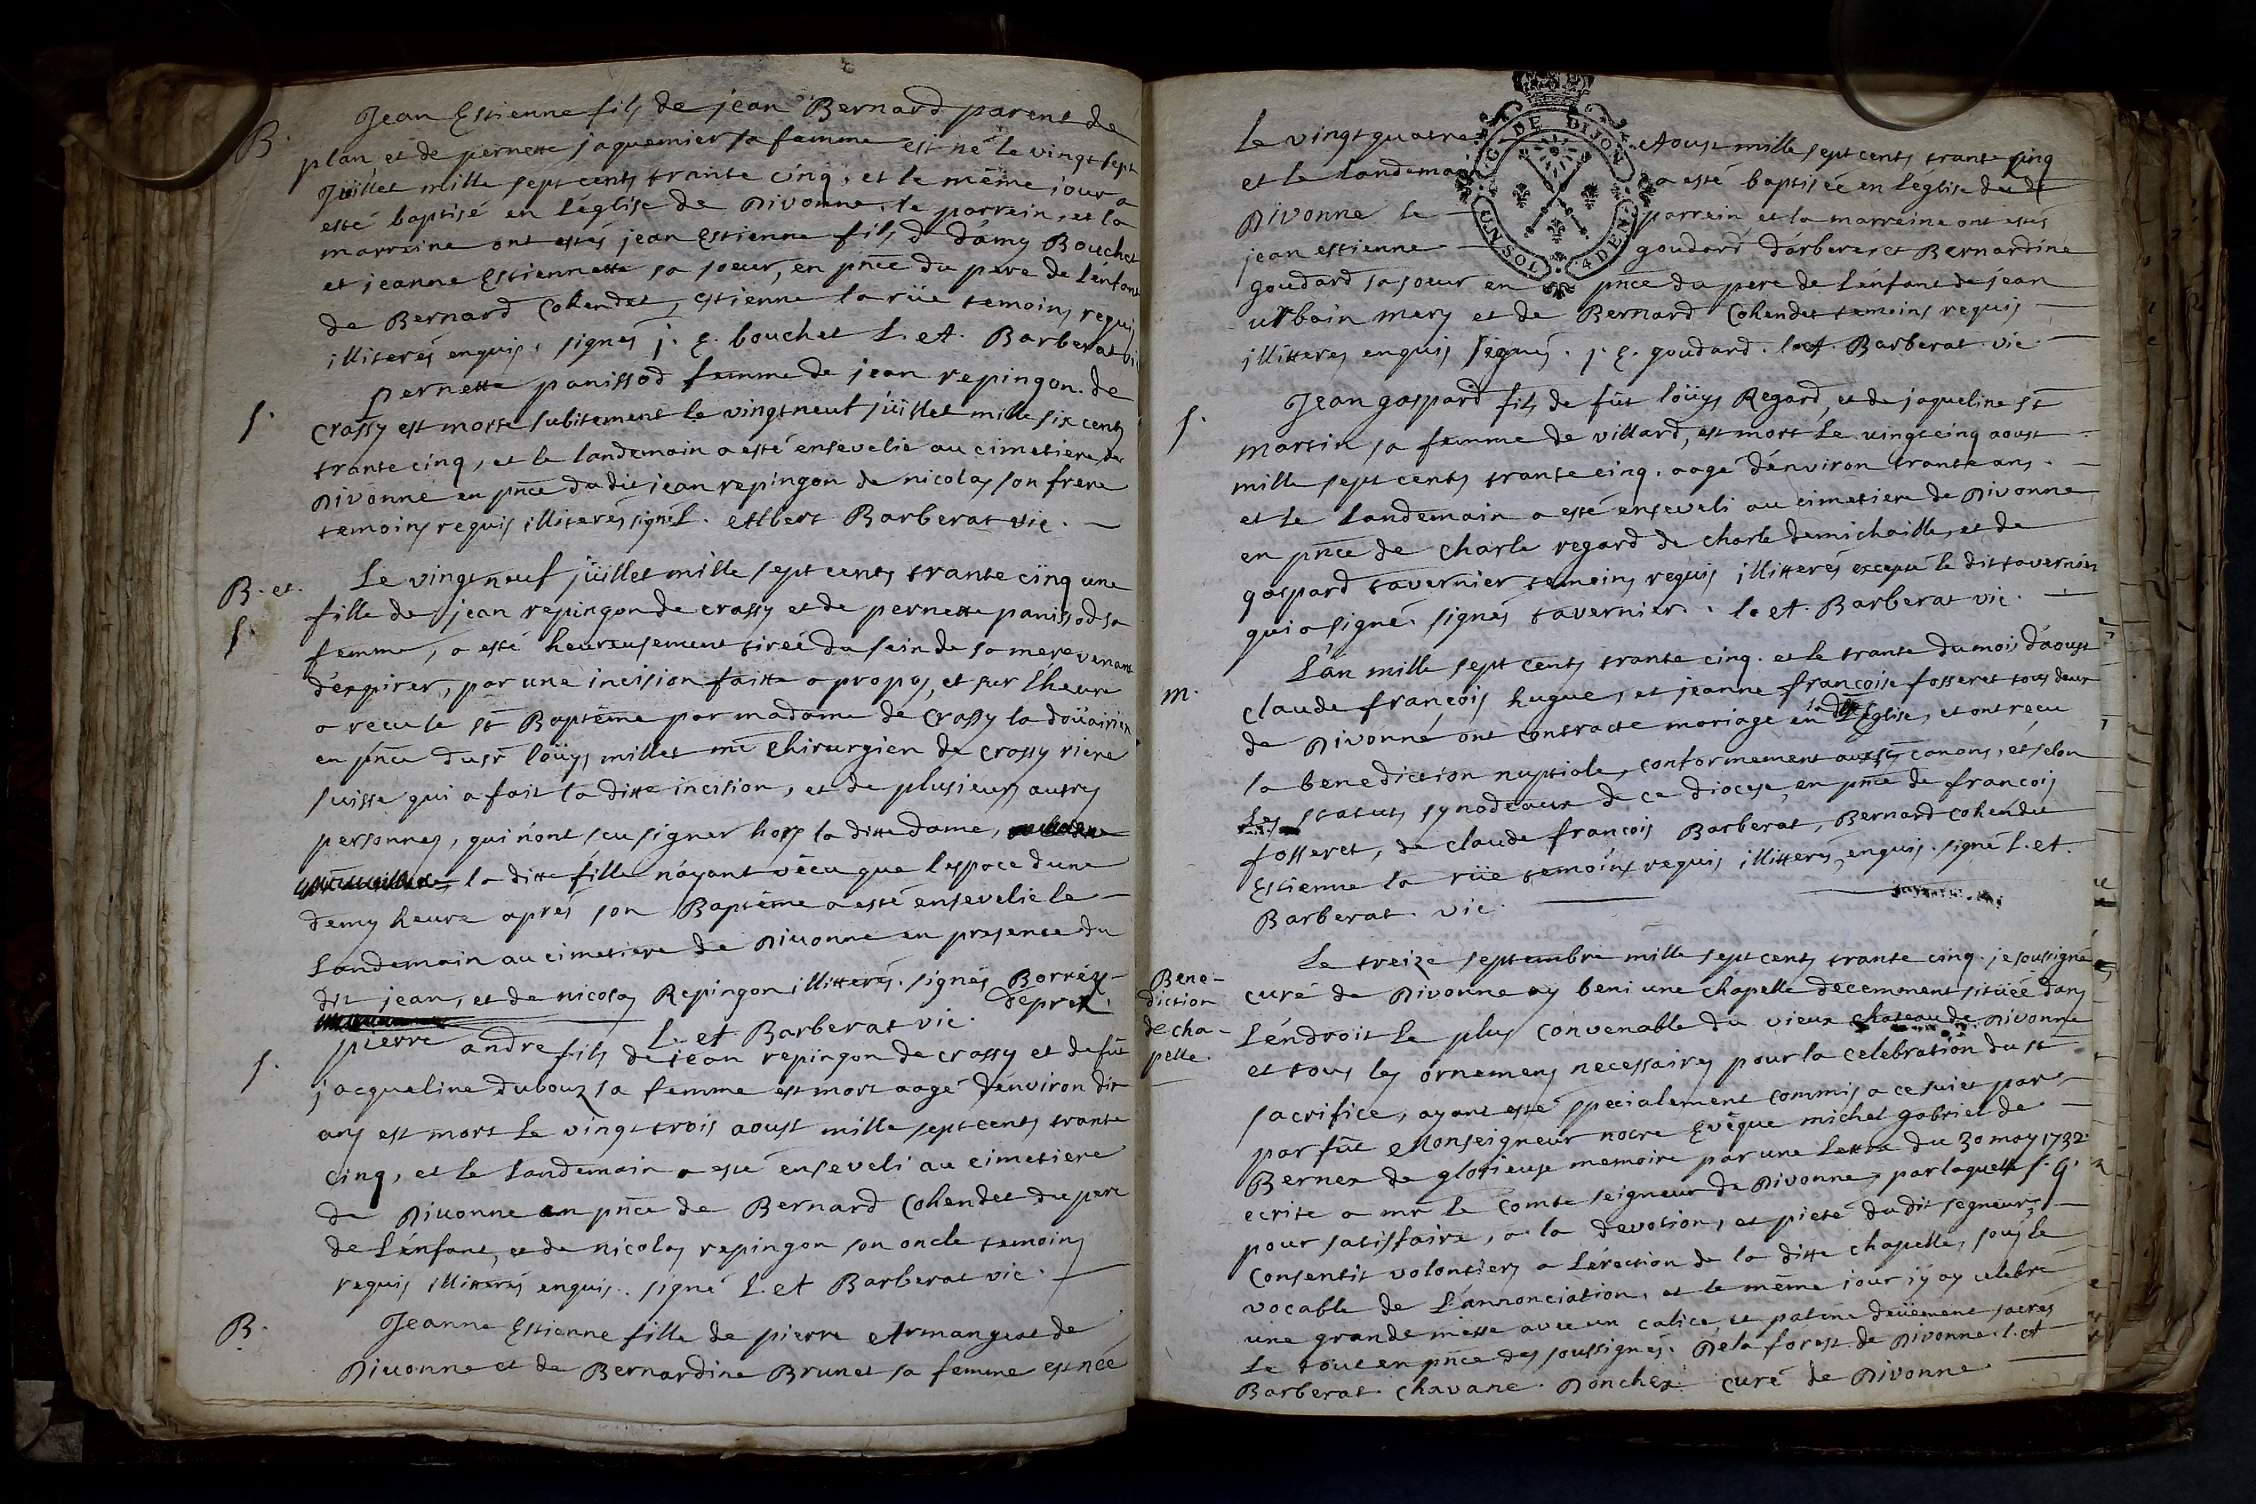 B. Jean Estienne fils de jean Bernard parent de
plan et de pernette jaquemier sa femme est né le vingt sept
Jüillet mille sept cents trante cinq, et le même jour a
esté baptisé en l'église de Divonne, le parrein, et la
marreine ont estés jean Estienne fils d'ámy Bouchet
et jeanne Estiennette sa soeur, en pñce du pere de l'énfant
de Bernard Cohendet, estienne la rüe temoins requis
illiterés enquis, signés j. E. bouchet L. A. Barberat vic
pernette panissod femme de jean repingon de
S. Crassy est morte subitement le vingt neuf jüillet mille six cents
trante cinq, et le landemain a esté ensevelie au cimetiere de
Divonne en pñce du dit jean repingon de nicolas son frere
temoins requis illiterés signé L. Albert Barberat vic.
B. et. Le vingt neuf jüillet mille sept cents trante cinq une
fille de jean repingon de crassy et de pernette panissod sa
S. femme, a esté heureusement tireé du sein de sa mere venant
d'éxpirer, par une incision faitte a propos, et sur l'heure
a recu le st Baptême par madame de Crassy la doüairiere
en pñce du sr loüys millet me chirurgien de crassy riere
suisse qui a fait la ditte incision, et de plusieurs autres
personnes, qui n'ont sçu signer hors la ditte dame,
la ditte fille n'áyant vécu que l'espace d'une
demy heure aprés son Baptême a esté ensevelie le
Landemain au cimetiere de Divonne en presence du
dit jean, et de nicolas Repingon illitterés. signés Borréx
deprex.
L. A Barberat vic.
S. pierre andre fils de jean repingon de crassy et de fût
jacqueline dubouz sa femme est mort aagé d'énviron dix
ans est mort le vingt trois aoust mille sept cents trante
cinq, et le landemain a esté enseveli au cimetiere
de Divonne en pñce de Bernard Cohendet du pere
de l'énfant, et de nicolas repingon son oncle temoins
requis illitterés enquis. signé L. A Barberat vic.
B. Jeanne Estienne fille de pierre Armangeat de
Divonne et de Bernardine Brunet sa femme est née
Le vingt quatre Aoust mille sept cents trante cinq
et le landemain a esté baptisée en l'église de
Divonne le parrein et la marreine ont estés
jean estienne goudard d'árberes et Bernardine
goudard sa soeur en pñce du pere de l'énfant de jean
urbain mery et de Bernard Cohendet temoins requis
illitteres enquis signés. j. E. goudard. l. A. Barberat. vic.
Jean gaspard fils de fût loüys Regard, et de jaqueline st
S. martin sa femme de villard, est mort le vingt cinq aoust
mille sept cents trante cinq. aagé d'énviron trante ans.
et le Landemain a esté enseveli au cimetiere de Divonne
en pñce de charle regard de charle demichaille, et de
gaspard tavernier temoins requis illitterés excepté le dit tavernier
qui a signé. signés tavernier. l. A. Barberat vic.
L'an mille sept cents trante cinq. et le trante du mois d'aoust
m. claude françois hugue, et jeanne françoise fosseret tous deux
de Divonne ont contracté mariage en la ditte Eglise, et ont recu
la benediction nuptiale, conformement aux sts canons, et selon
Les statuts synodeaux de ce diocese, en pñce de francois
fosseret, de claude françois Barberat, Bernard cohendet
Estienne la rüe temoins requis illitterés, enquis. signé L. A.
Barberat. vic.
Le treize septembre mille sept cents trante cinq. je soussigné
Bene-
diction
de cha-
pelle.
curé de Divonne ay beni une chapelle decemment située dans
l'éndroit le plus convenable du vieux chateau de Divonne
et tous les ornemens necessaires pour la celebration du st
sacrifice, ayant esté specialement commis a ce sujet par
par fût Monseigneur notre Evêque michel gabriel de
Bernex de glorieuse memoire par une Lettre du 30 may 1732.
ecrite a mr le Comte seigneur de Divonne, par laquelle S. G.
pour satisfaire, a la devotion, et pieté du dit segneur,
consentit volontiers a l'érection de la ditte chapelle, sous le
vocable de L'annonciation, et le même jour j'y ay celebré
une grande messe avec un calice et patene deüement sacrés
Le tout en pñce des soussignés. De la forest de Divonne. l. A
Barberat. Chavane. Donchex curé de Divonne
G. DE DIJON
UN SOL 4 DEN